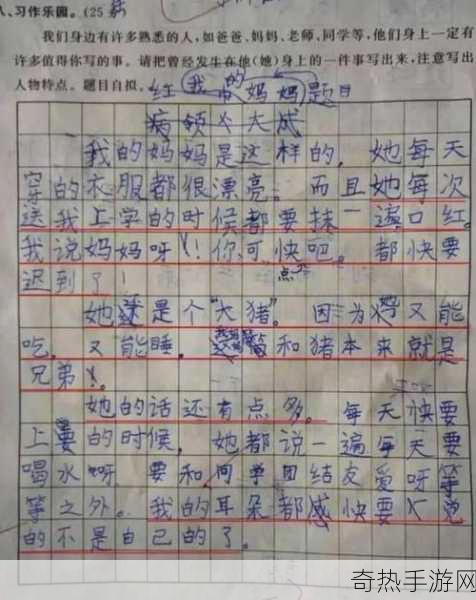 八、习作乐园。(25
我们身边有许多熟悉的人,如爸爸、妈妈、老师、同学等,他们身上一定有
许多值得你写的事。请把曾经发生在他(她)身上的一件事写出来,注意写出
人物特点。题目自拟。
红 我的妈妈 题目
我的妈妈是这样的。她每天
穿的衣服都很漂亮。而且她每次
送我上学的时候都要抹一遍口红。
我说妈妈呀!你可快点吧。都快要
迟到了!
她还是个“大猪”。因为又能
吃,又能睡。和猪本来就是
兄弟。
她的话还有点多。每天快要
上的时候,她都说一遍每天要
喝水呀 要和同学团结友爱呀等
等之外。我的耳朵都感快要
的不是自己的了。
奇热手游网